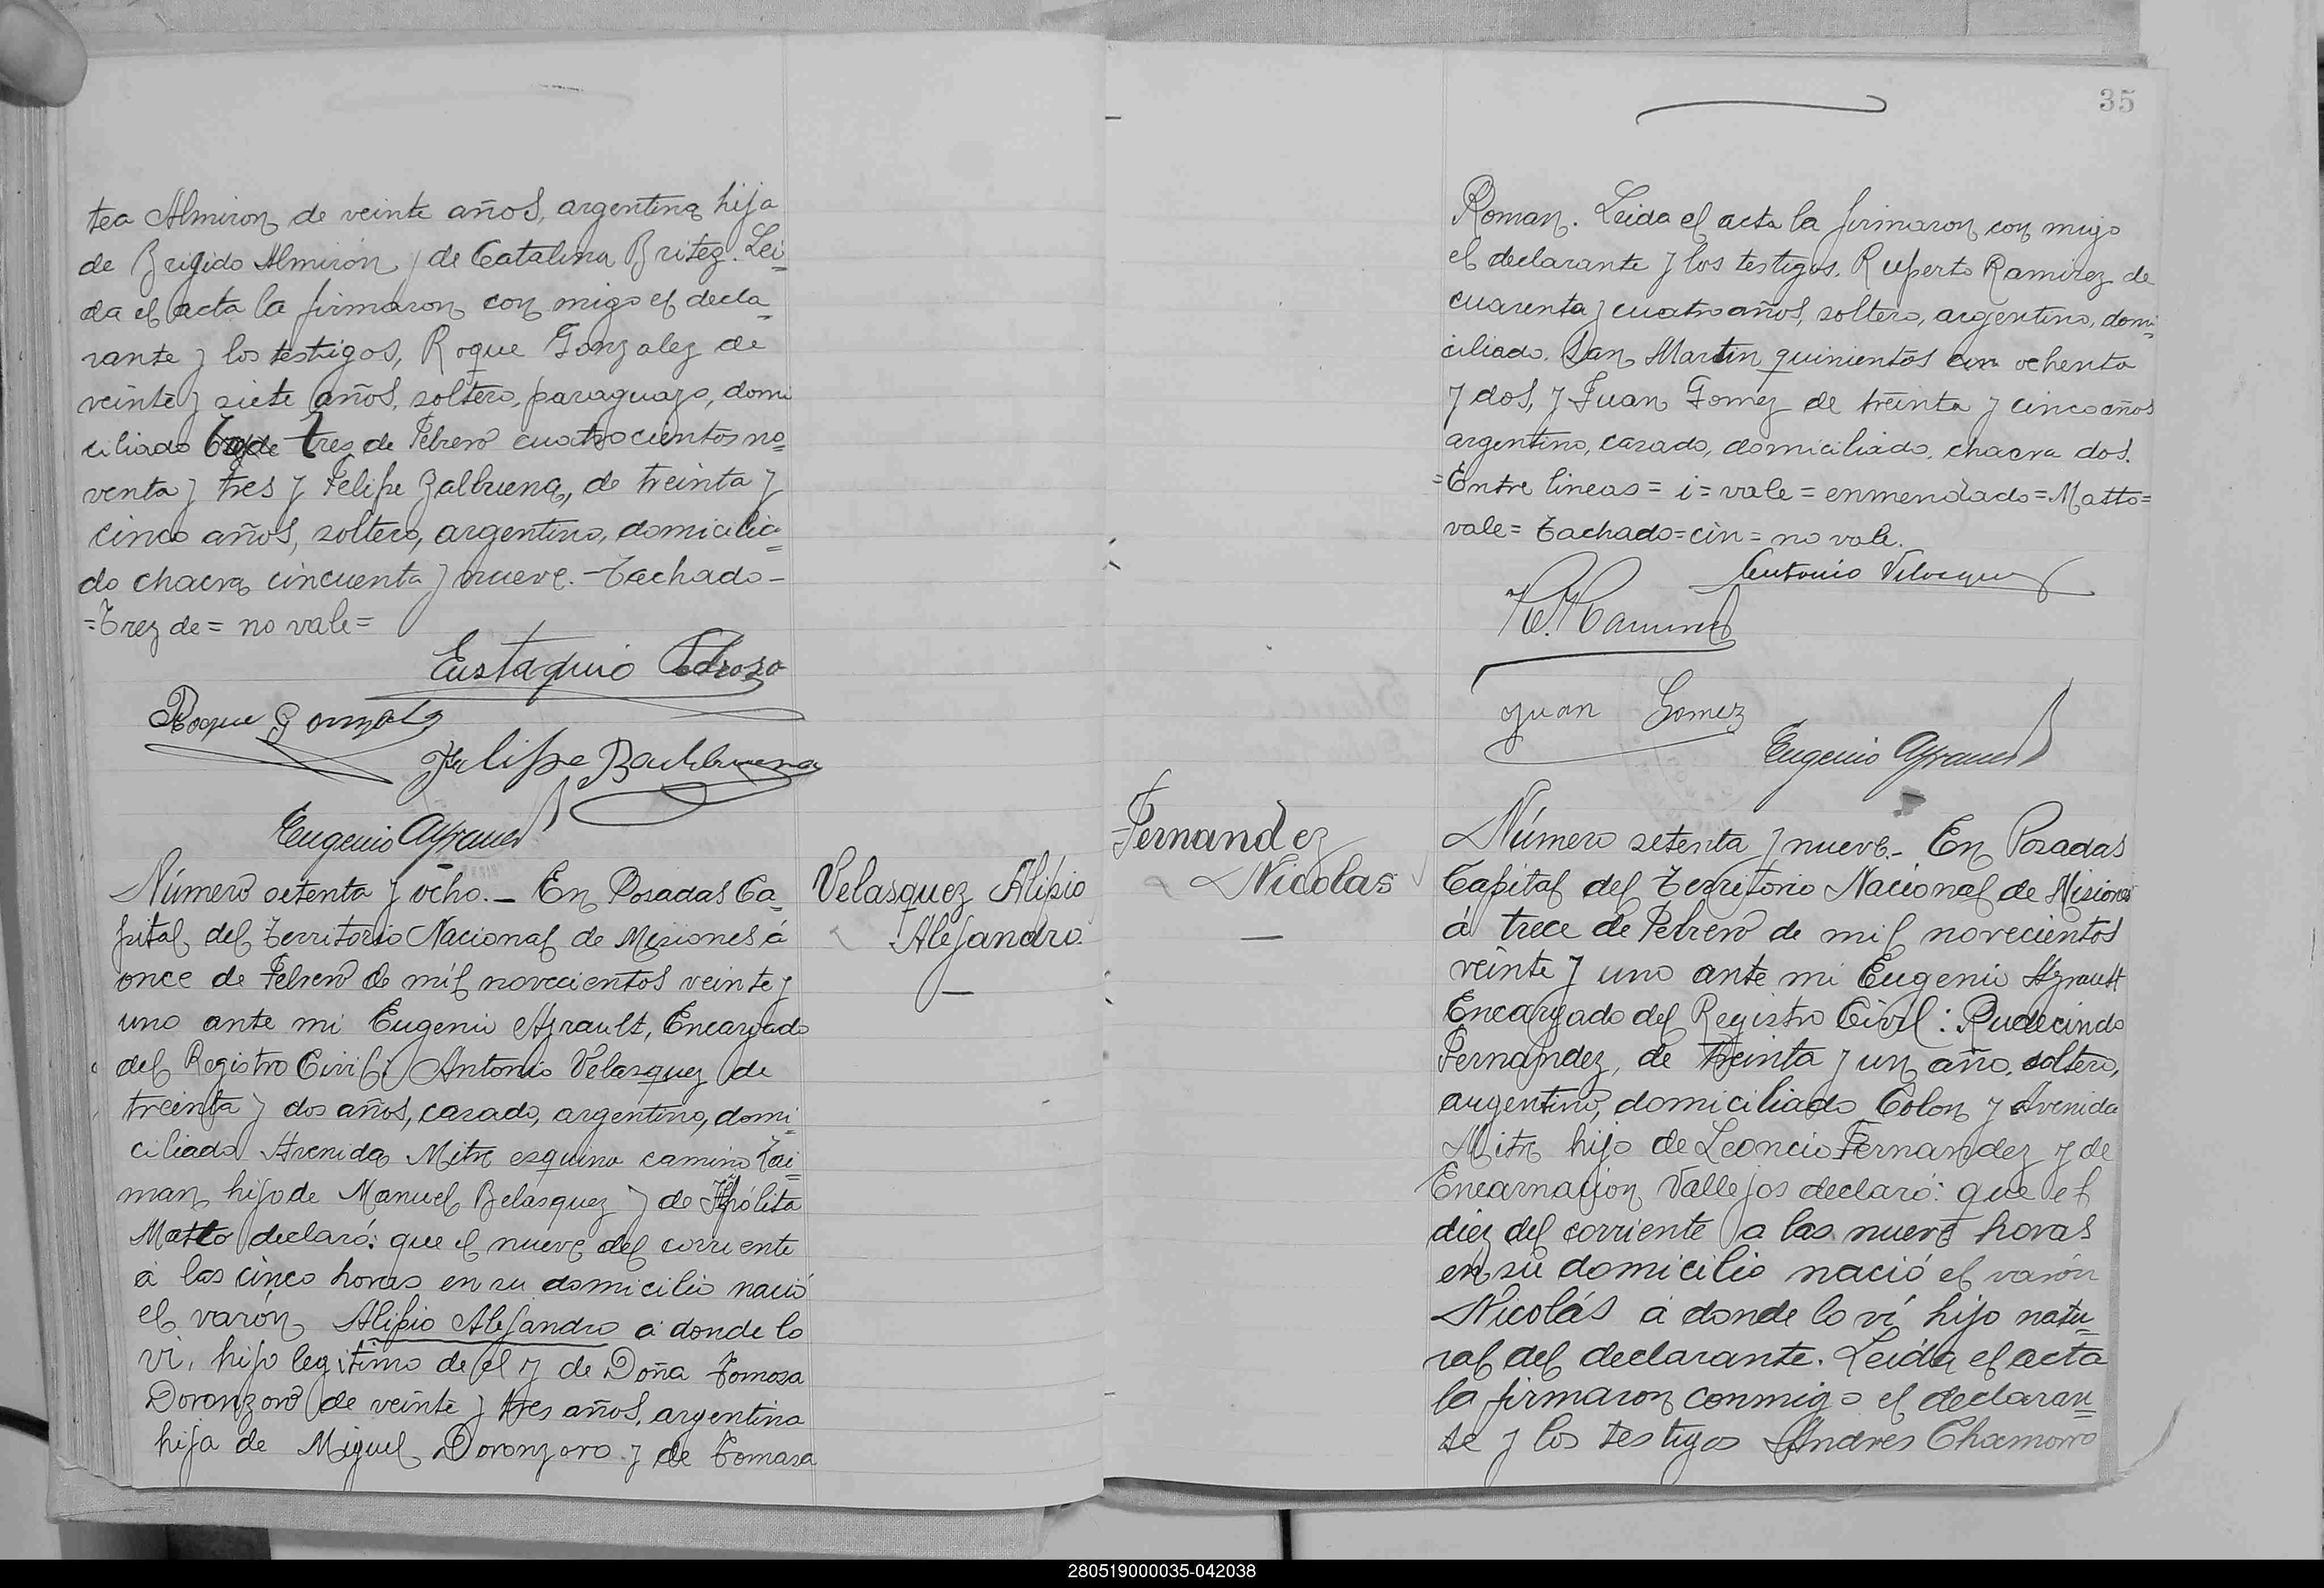 tea Almiron de veinte años, argentina hija
de Brigido Almirón y de Catalina Britez. Lei=
da el acta la firmaron con migo el decla=
rante y los testigos, Roque Gonzalez de
veinte y siete años, soltero, paraguayo, domi
ciliado Tres de Febrero cuatrocientos no=
venta y tres y Felipe Zalbuena, de treinta y
cinco años, soltero, argentino, domicilia=
do chacra cincuenta y nueve. - Tachado -
= Trez de = no vale =
Eustaquio Pedrozo
Roque Gonzalez
Felipe Balbuena
Eugenio Azrault
Velasquez Alipio
Alejandro
Número setenta y ocho. - En Posadas Ca=
pital del Territorio Nacional de Misiones á
once de Febrero de mil novecientos veinte y
uno ante mi Eugenio Azrault, Encargado
del Registro Civil: Antonio Velasquez de
treinta y dos años, casado, argentino, domi=
ciliado Avenida Mitre esquina camino Tai=
man hijo de Manuel Belasquez y de Hipólita
Matto declaró: que el nueve del corriente
á las cinco horas en su domicilio nació
el varón Alipio Alejandro a donde lo
vi, hijo legitimo de el y de Doña Tomasa
Doronzoro de veinte y tres años, argentina
hija de Miguel Doronzoro y de Tomasa
35
Roman. Leida el acta la firmaron con migo
el declarante y los testigos. Ruperto Ramirez de
cuarenta y cuatro años, soltero, argentino, domi=
ciliado. San Martin quinientos cin ochenta
y dos, y Juan Gomez de treinta y cinco años
argentino, casado, domiciliado, chacra dos.
= Entre lineas = i = vale = enmendado = Matto =
vale = Tachado = cin = no vale.
Antonio Velasquez
R. Ramirez
Juan Gomez
Eugenio Azrault
Fernandez
Nicolas
Número setenta y nueve. - En Posadas
Capital del Territorio Nacional de Misiones
á trece de Febrero de mil novecientos
veinte y uno ante mi Eugenio Azrault
Encargado del Registro Civil: Rudecindo
Fernandez, de treinta y un año, soltero,
argentino, domiciliado Colon y Avenida
Mitre hijo de Leoncio Fernandez y de
Encarnación Vallejos declaró: que el
diez del corriente a las nueve horas
en su domicilio nació el varón
Nicolás a donde lo ví hijo natu=
ral del declarante. Leida el acta
la firmaron conmigo el declaran=
te y los testigos Andres Chamorro
280519000035-042038